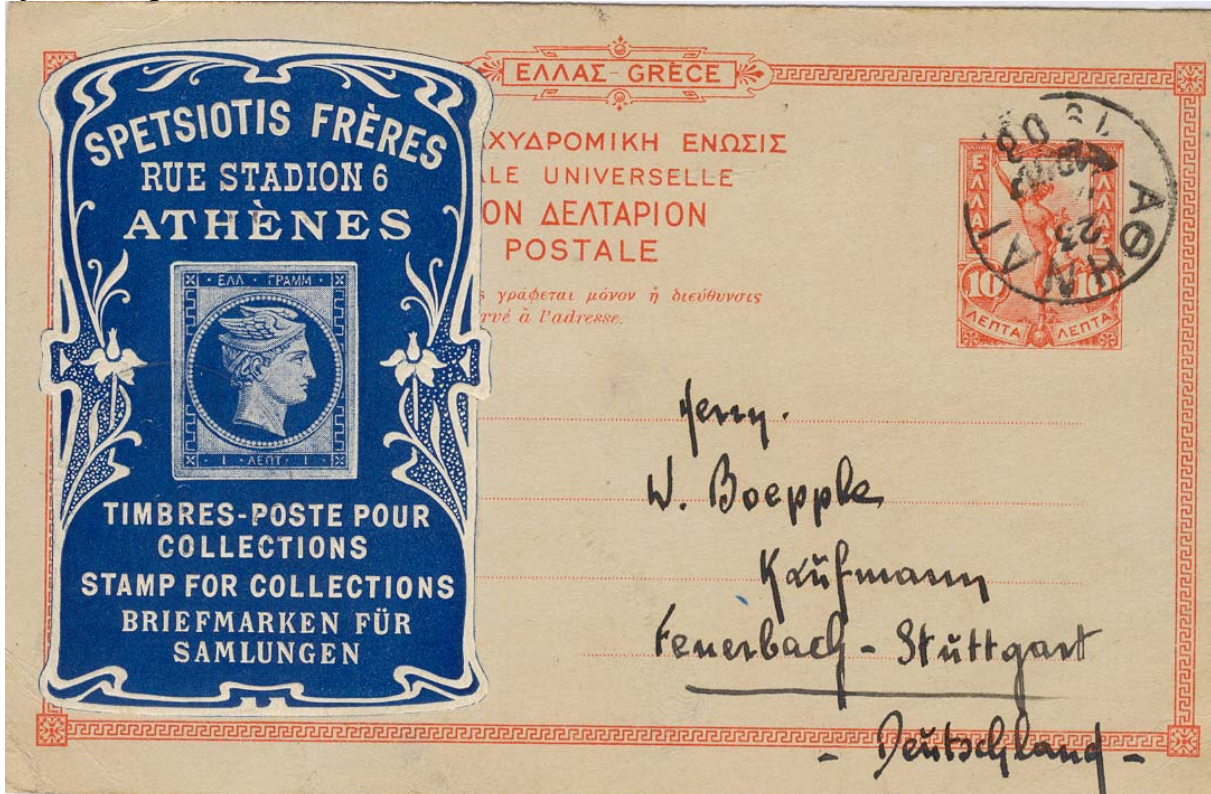 SPETSIOTIS FRÈRES
RUE STADION 6
ATHÈNES
ΕΛΛ · ΓΡΑΜΜ
1 · ΛΕΠΤ · 1
TIMBRES-POSTE POUR
COLLECTIONS
STAMP FOR COLLECTIONS
BRIEFMARKEN FÜR
SAMLUNGEN
ΕΛΛΑΣ-GRÈCE
ΑΧΥΔΡΟΜΙΚΗ ΕΝΩΣΙΣ
ALE UNIVERSELLE
ΟΝ ΔΕΛΤΑΡΙΟΝ
POSTALE
ς γράφεται μόνον ἡ διεύθυνσις
rvé à l'adresse.
ΕΛΛΑΣ ΕΛΛΑΣ
10 10
ΛΕΠΤΑ ΛΕΠΤΑ
ΑΘΗΝΑΙ
23
Herrn.
W. Boepple
Kaufmann
Feuerbach - Stuttgart
- Deutschland -